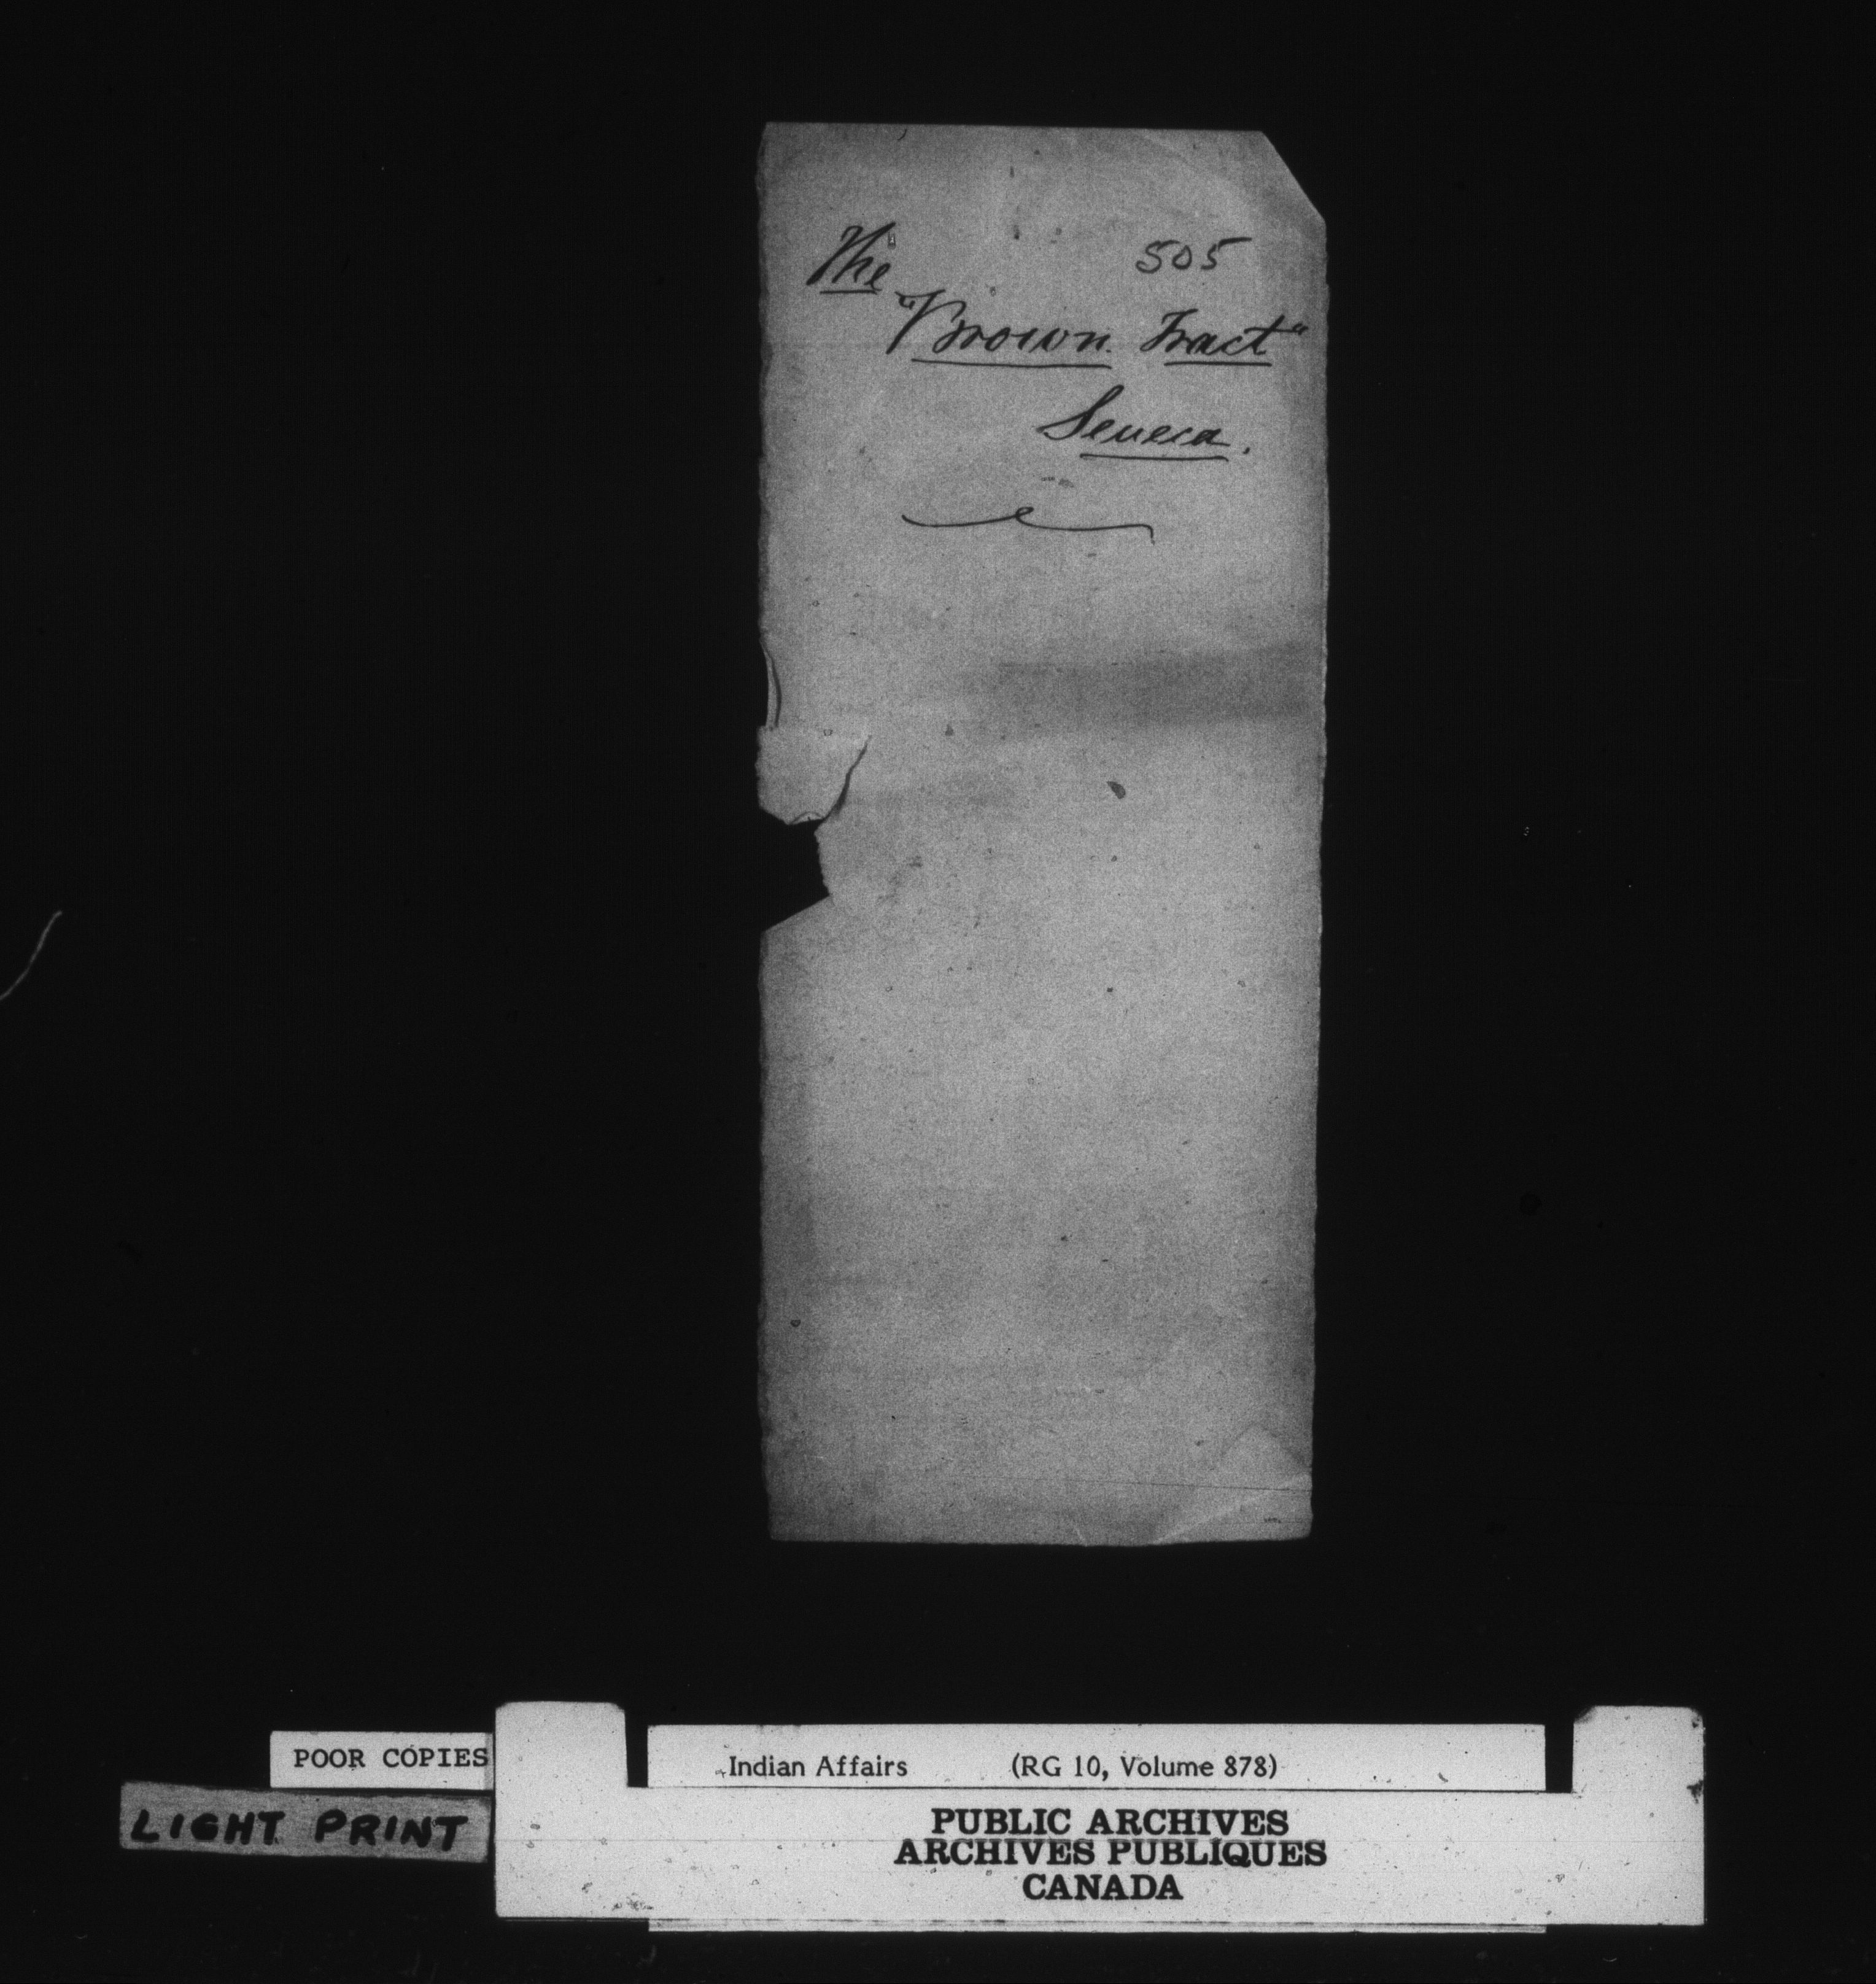 505
The
"Brown Tract"
Seneca.
POOR COPIES
LIGHT PRINT
Indian Affairs (RG 10, Volume 878)
PUBLIC ARCHIVES
ARCHIVES PUBLIQUES
CANADA